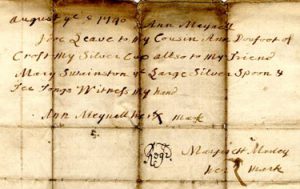 August ye 8 1740 Ann Meynell
I doe Leave to my Cousin Ann Dosfoot of
Croft My Silver Cup allso to my Friend
Mary Swainston ye Large Silver Spoon &
Tea Tongs Witness my hand
Ann Meynell her X mark
Margret Maxey
her mark